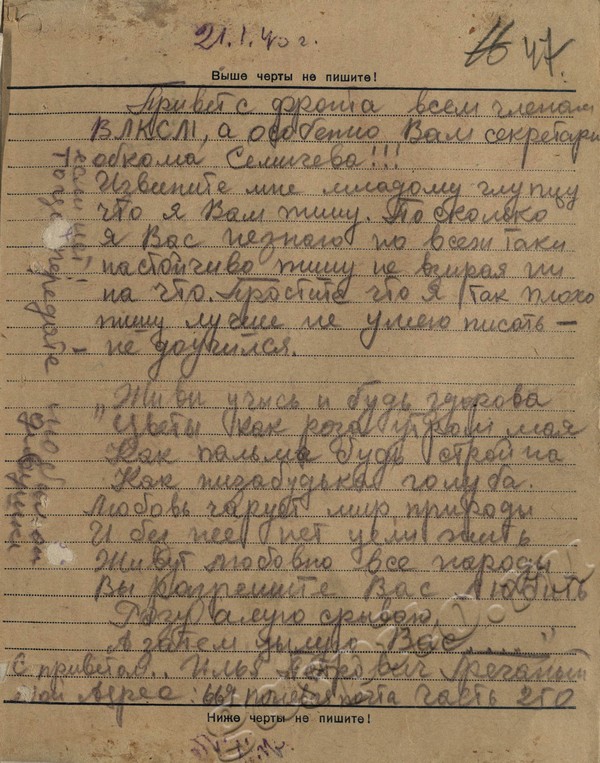 21.I.40 г.
47.
Выше черты не пишите!
Привет с фронта всем членам
ВЛКСМ, а особенно Вам секретарь
обкома Семичева!!!
Извените мне младому глупцу
что я Вам пишу. Посколько
я Вас незнаю но всеж таки
настойчиво пишу не взирая ни
на что. Простите что я так плохо
пишу лучше не умею писать —
— не доучился.
„Живи учись и будь здорова
Цвети как роза утром мая
Как пальма будь стройна
Как низабудька голуба.
Любовь чарует мир природы
И без нее нет цели жить
Живут любовно все народы
Вы разрешите Вас любить
Розу алую срываю,
А затем целую Вас ........"
С приветом.. Илья Петрович Гречаный
мой Адрес: 669 полевая почта часть 210
Ниже черты не пишите!
передайте